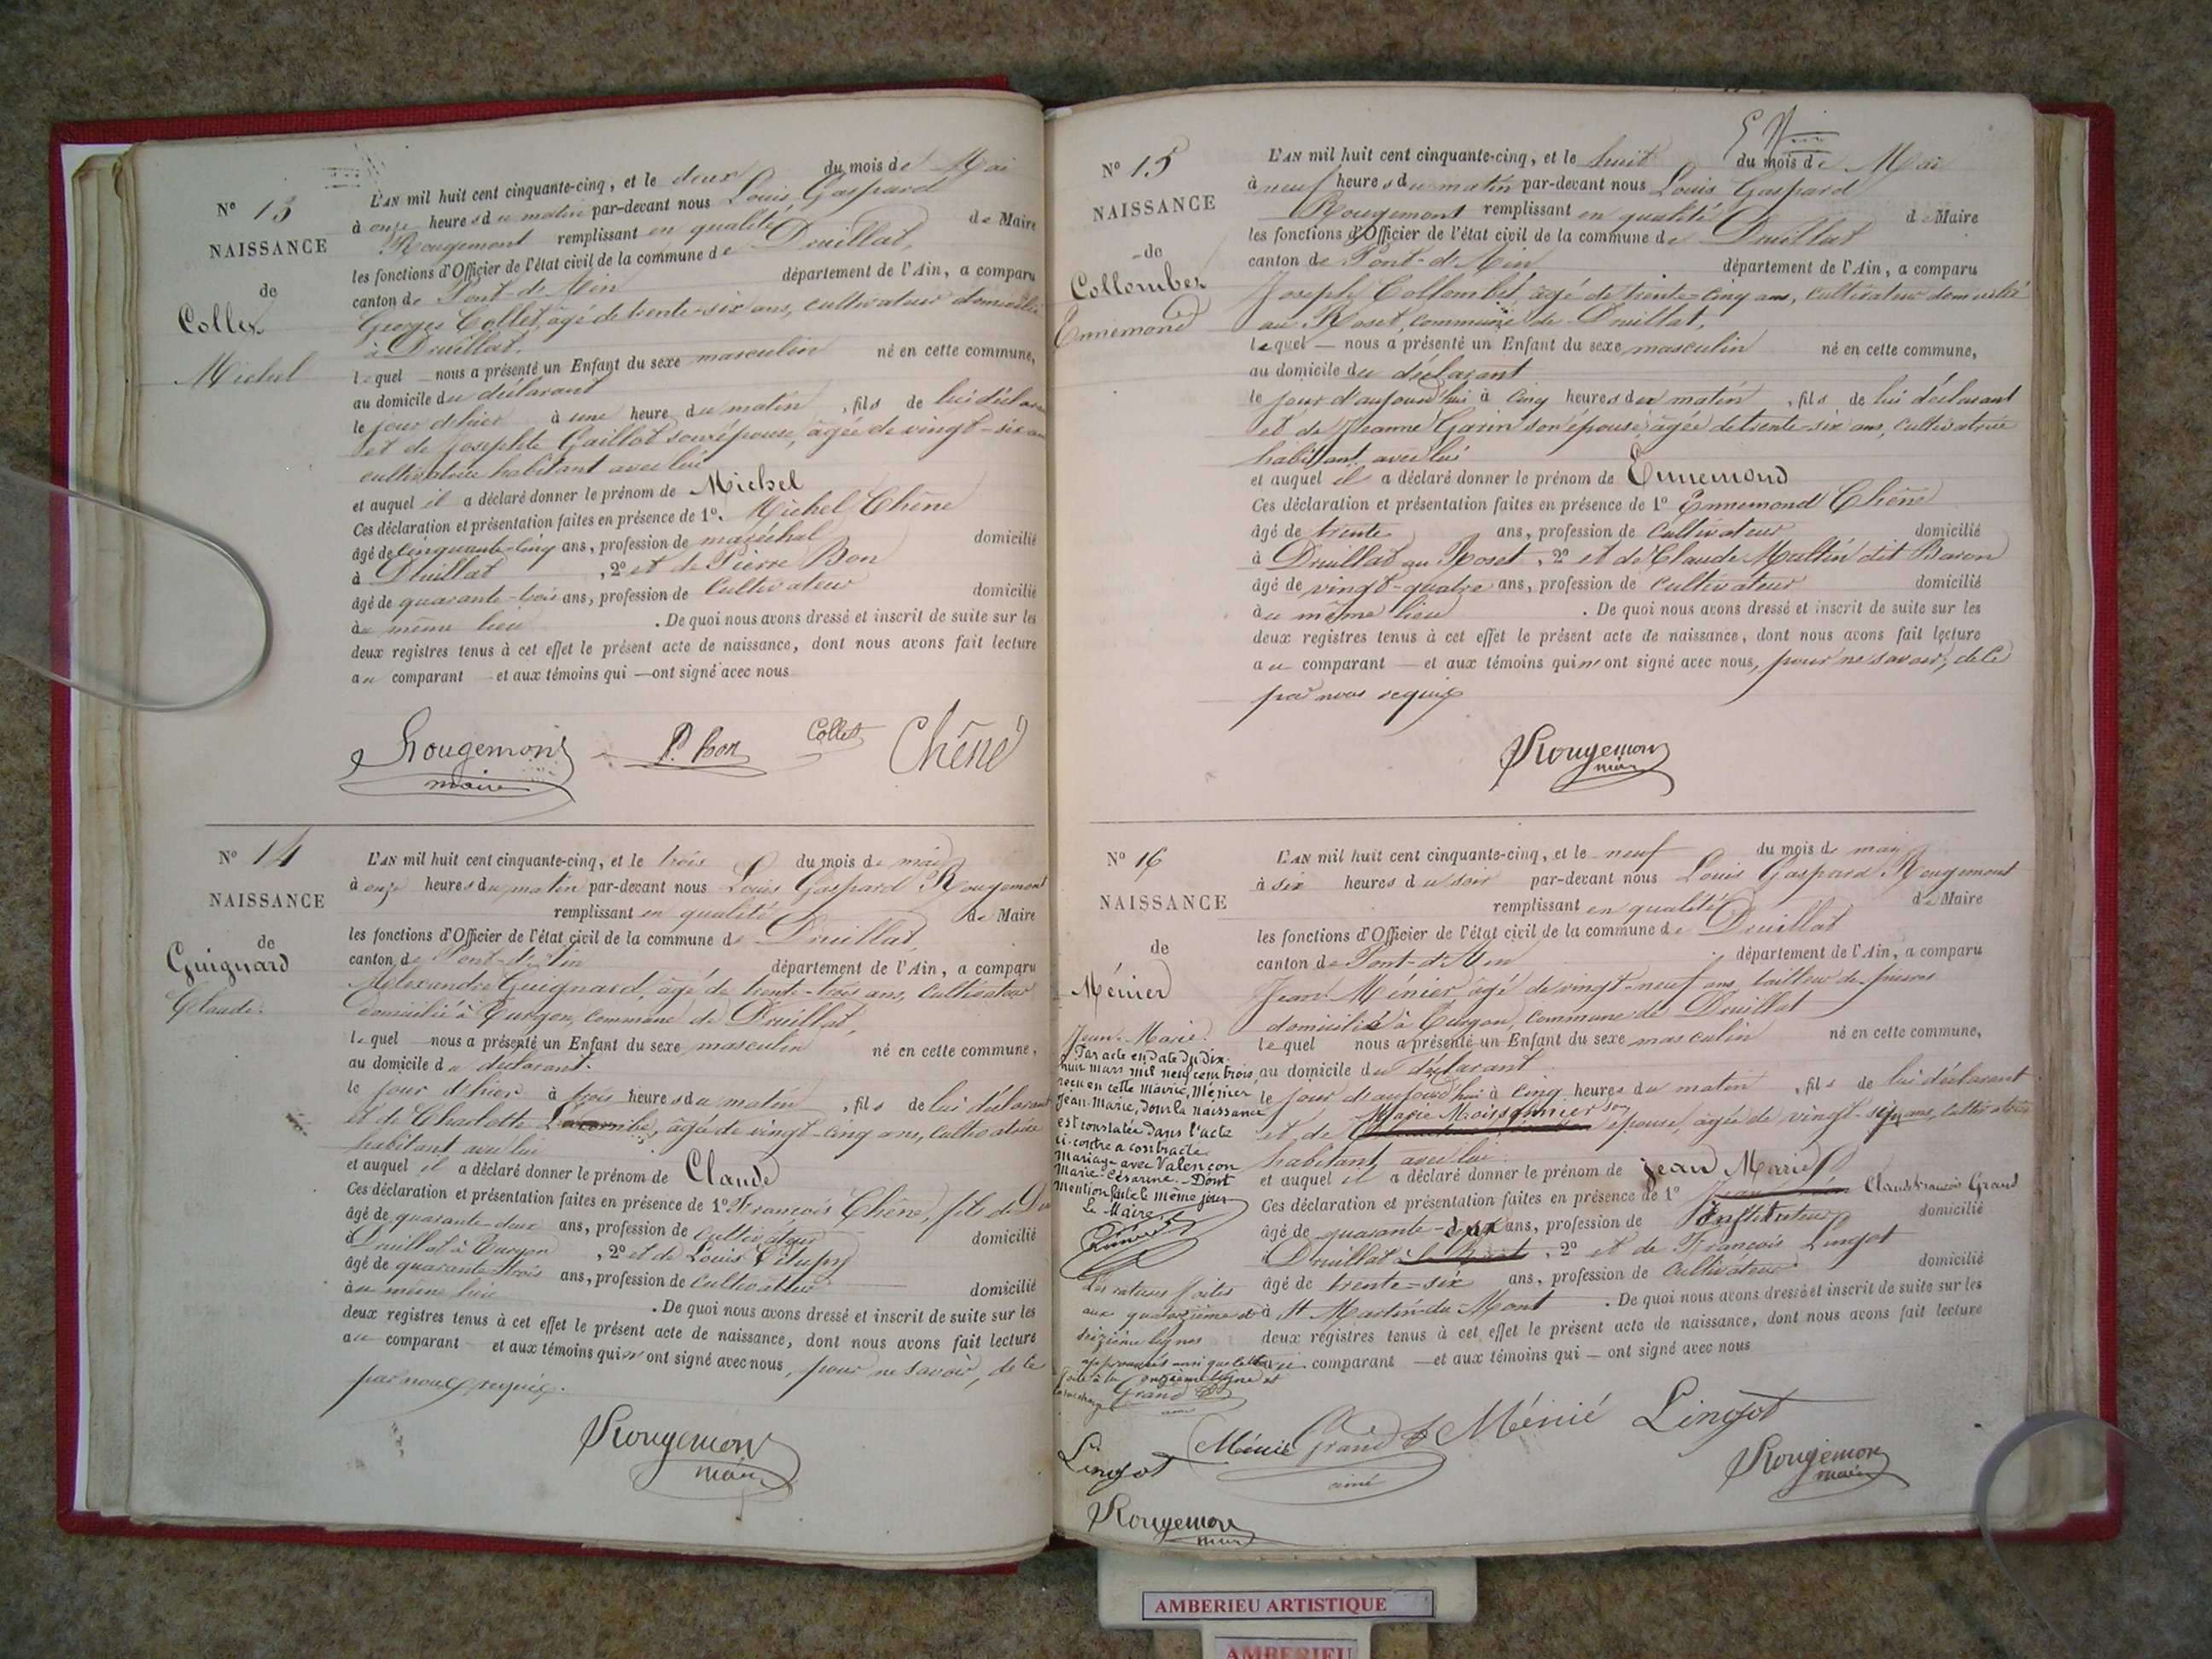 N° 13
NAISSANCE
de
Collet
Michel
L'AN mil huit cent cinquante-cinq, et le deux du mois de Mai
à onze heures du matin par-devant nous Louis Gaspard
Rougemont remplissant en qualité de Maire
les fonctions d'Officier de l'état civil de la commune de Druillat,
canton de Pont-d'Ain département de l'Ain, a comparu
Georges Collet, âgé de trente-six ans, cultivateur domicilié
à Druillat.
lequel nous a présenté un Enfant du sexe masculin né en cette commune,
au domicile du déclarant
le jour d'hier à une heure du matin, fils de lui déclarant
et de Josephte Gaillot son épouse, âgée de vingt-six ans
cultivatrice habitant avec lui
et auquel il a déclaré donner le prénom de Michel
Ces déclaration et présentation faites en présence de 1°. Michel Chêne
âgé de cinquante-cinq ans, profession de maréchal domicilié
à Druillat, 2° et de Pierre Bon
âgé de quarante-trois ans, profession de cultivateur domicilié
au même lieu. De quoi nous avons dressé et inscrit de suite sur les
deux registres tenus à cet effet le présent acte de naissance, dont nous avons fait lecture
au comparant et aux témoins qui ont signé avec nous
Rougemont P. Bon Collet Chêne
maire
N° 14
NAISSANCE
de
Guignard
Claude.
L'AN mil huit cent cinquante-cinq, et le trois du mois de mai
à onze heures du matin par-devant nous Louis Gaspard Rougemont
remplissant en qualité de Maire
les fonctions d'Officier de l'état civil de la commune de Druillat,
canton de Pont-d'Ain département de l'Ain, a comparu
Alexandre Guignard, âgé de trente-trois ans, cultivateur
domicilié à Turgon, commune de Druillat,
lequel nous a présenté un Enfant du sexe masculin né en cette commune,
au domicile du déclarant.
le jour d'hier à trois heures du matin, fils de lui déclarant
et de Charlotte, âgée de vingt-cinq ans, cultivatrice
habitant avec lui
et auquel il a déclaré donner le prénom de Claude
Ces déclaration et présentation faites en présence de 1° François Chêne, fils de
âgé de quarante-deux ans, profession de cultivateur domicilié
à Druillat à Turgon, 2° et de Louis
âgé de quarante-trois ans, profession de cultivateur domicilié
au même lieu. De quoi nous avons dressé et inscrit de suite sur les
deux registres tenus à cet effet le présent acte de naissance, dont nous avons fait lecture
au comparant et aux témoins qui n'ont signé avec nous, pour ne savoir, de ce
par nous requis.
Rougemont
maire
N° 15
NAISSANCE
de
Collombet
Ennemond
L'AN mil huit cent cinquante-cinq, et le huit du mois de Mai
à neuf heures du matin par-devant nous Louis Gaspard
Rougemont remplissant en qualité de Maire
les fonctions d'Officier de l'état civil de la commune de Druillat
canton de Pont-d'Ain département de l'Ain, a comparu
Joseph Collombet, âgé de trente-cinq ans, cultivateur domicilié
au Roset, commune de Druillat,
lequel nous a présenté un Enfant du sexe masculin né en cette commune,
au domicile du déclarant
le jour d'aujourd'hui à cinq heures du matin, fils de lui déclarant
et de Jeanne Garin son épouse, âgée de trente-six ans, cultivatrice
habitant avec lui
et auquel il a déclaré donner le prénom de Ennemond
Ces déclaration et présentation faites en présence de 1° Ennemond Chêne
âgé de trente ans, profession de cultivateur domicilié
à Druillat au Roset, 2° et de Claude Mallin dit Baron
âgé de vingt-quatre ans, profession de cultivateur domicilié
au même lieu. De quoi nous avons dressé et inscrit de suite sur les
deux registres tenus à cet effet le présent acte de naissance, dont nous avons fait lecture
au comparant et aux témoins qui n'ont signé avec nous, pour ne savoir, de ce
par nous requis
Rougemont
maire
N° 16
NAISSANCE
de
Ménier
Jean-Marie.
Par acte en date du dix-
huit mars mil neuf cent trois,
reçu en cette Mairie, Ménier
Jean-Marie, dont la naissance
est constatée dans l'acte
ci-contre a contracté
mariage avec Valençon
Marie-Césarine. - Dont
mention faite le même jour
Le Maire,
Les ratures faites
aux quatorzième et
seizième lignes
approuvées ainsi que celle
faite à la onzième ligne et
Grand
Lingot
Rougemont
maire
L'AN mil huit cent cinquante-cinq, et le neuf du mois de may
à six heures du soir par-devant nous Louis Gaspard Rougemont
remplissant en qualité de Maire
les fonctions d'Officier de l'état civil de la commune de Druillat
canton de Pont-d'Ain département de l'Ain, a comparu
Jean Ménier âgé de vingt-neuf ans, tailleur de pierres
domicilié à Turgon, commune de Druillat
lequel nous a présenté un Enfant du sexe masculin né en cette commune,
au domicile du déclarant
le jour d'aujourd'hui à cinq heures du matin, fils de lui déclarant
et de Marie Moissonnier son épouse, âgée de vingt-sept ans, cultivatrice
habitant avec lui.
et auquel il a déclaré donner le prénom de Jean Marie
Ces déclaration et présentation faites en présence de 1° Claude François Grand
âgé de quarante-deux ans, profession de Instituteur domicilié
à Druillat, 2° et de François Lingot
âgé de trente-six ans, profession de cultivateur domicilié
à St Martin-du-Mont. De quoi nous avons dressé et inscrit de suite sur les
deux registres tenus à cet effet le présent acte de naissance, dont nous avons fait lecture
au comparant et aux témoins qui ont signé avec nous
Ménié Grand Ménié Lingot
aimé
Rougemont
maire
AMBERIEU ARTISTIQUE
AMBERIEU